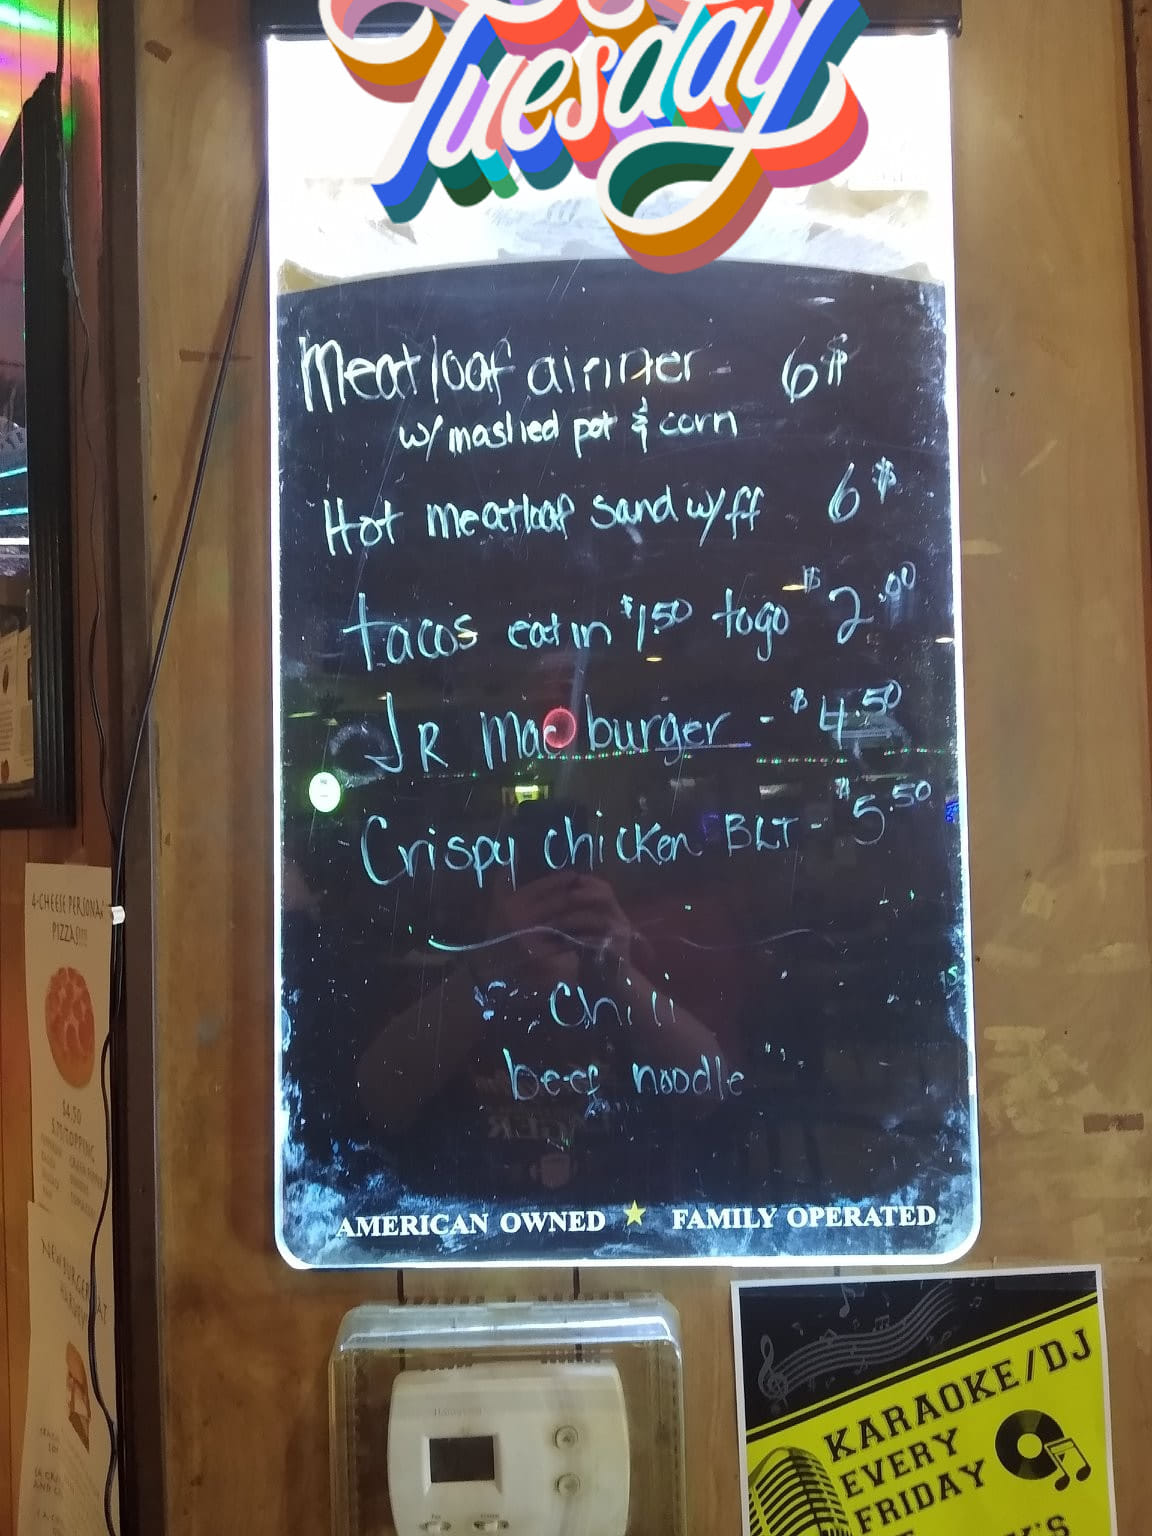 Tuesday
Meatloaf dinner - 6$
w/ mashed pot & corn
Hot meatloaf sand w/ff 6$
tacos eat in $1.50 togo $2.00
JR Mac burger - $4.50
Crispy chicken BLT - $5.50
Chili
beef noodle
AMERICAN OWNED ★ FAMILY OPERATED
4-CHEESE PERSONAL
PIZZAS!!!!
$4.50
KARAOKE/DJ
EVERY
FRIDAY